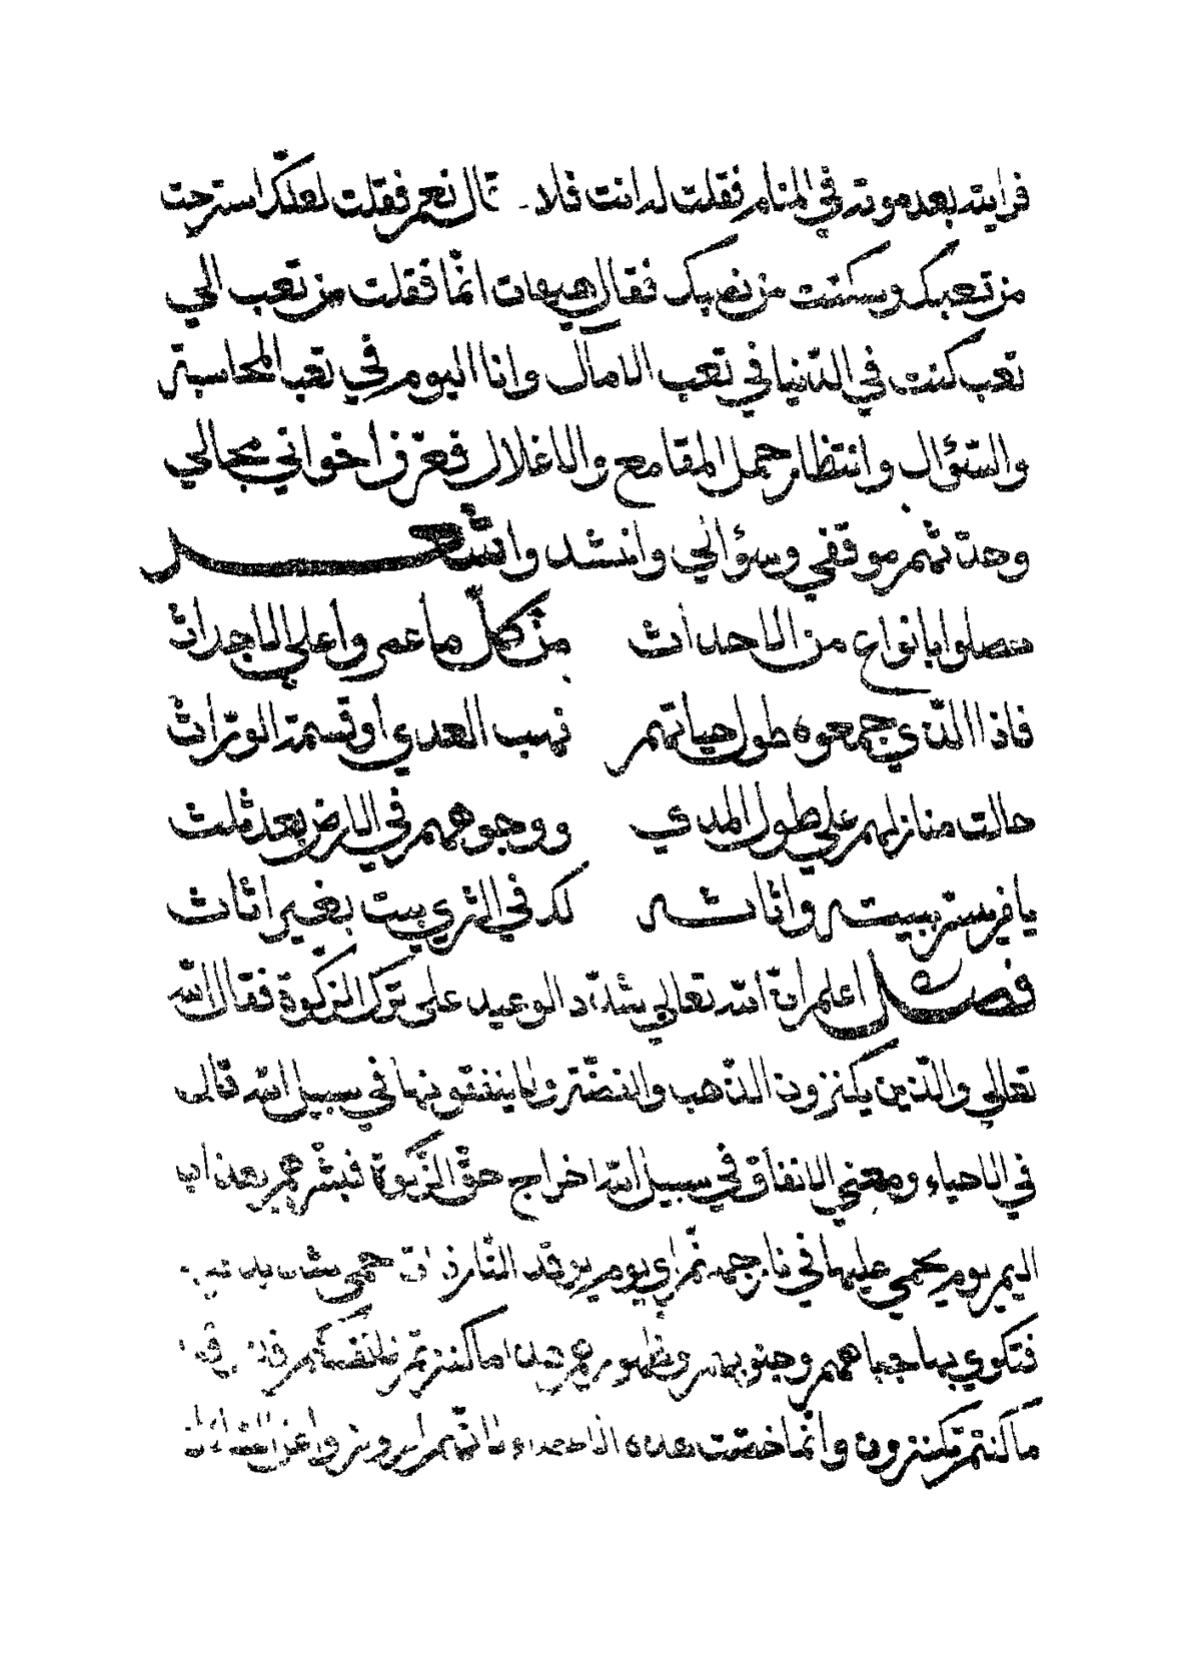 فرايته بعد موته في المنام فقلت له انت فلان قال نعم فقلت لعلك استرحت
من تعبك وسكنت من نصبك فقال هيهات انما نقلت من تعب الي
تعب كنت في الدّنيا في تعب الامال وانا اليوم في تعب المحاسبة
والسّؤال وانتظار حمل المقامع والاغلال فعرّف اخواني بحالي
وحدثهم موقفي وسؤالي وانشد واشعـــر
حصلوا بانواع من الاحداث من كلّ ما عمروا علي الاجداث
فاذا الذي جمعوه طول حياتهم نهب العدي او قسمة الورّاث
حالت منازلهم علي طول المدي ووجوههم في الارض بعد ثلث
يا فرستر ببيته واثاثه لك في الثري بيت بغير اثاث
فصل اعلم انّ الله تعالي شدّد الوعيد علي ترك الزكوة فقال الله
تعالي والّذين يكنزون الذّهب والفضّة ولا ينفقونها في سبيل الله قال
في الاحياء ومعني الانفاق في سبيل الله اخراج حقّ الزّكوة فبشّرهم بعذاب
اليم يوم يحمي عليها في نار جهنّم اي يوم يوقد النّار ذات حمي شديد
فتكوي بها جباههم وجنوبهم وظهورهم هذا ما كنزتم لانفسكم فذوقوا
ما كنتم تكنزون وانّما خصّت هذه الاعضاء لانّهم